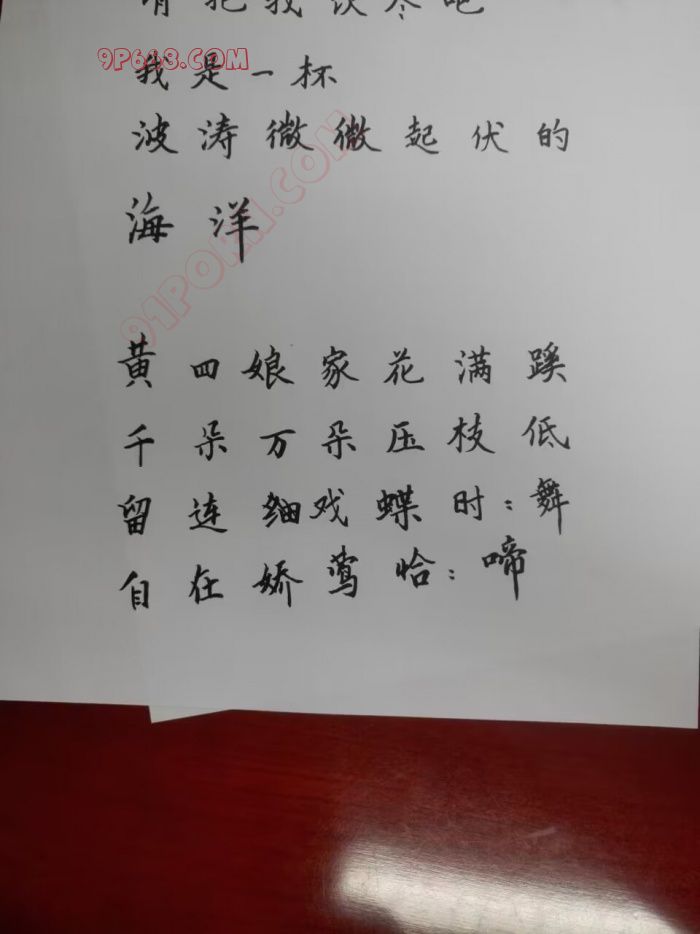 请把我饮尽吧
我是一杯
波涛微微起伏的
海洋
黄四娘家花满蹊
千朵万朵压枝低
留连细戏蝶时:舞
自在娇莺恰:啼
9P648.COM
91PORN.COM